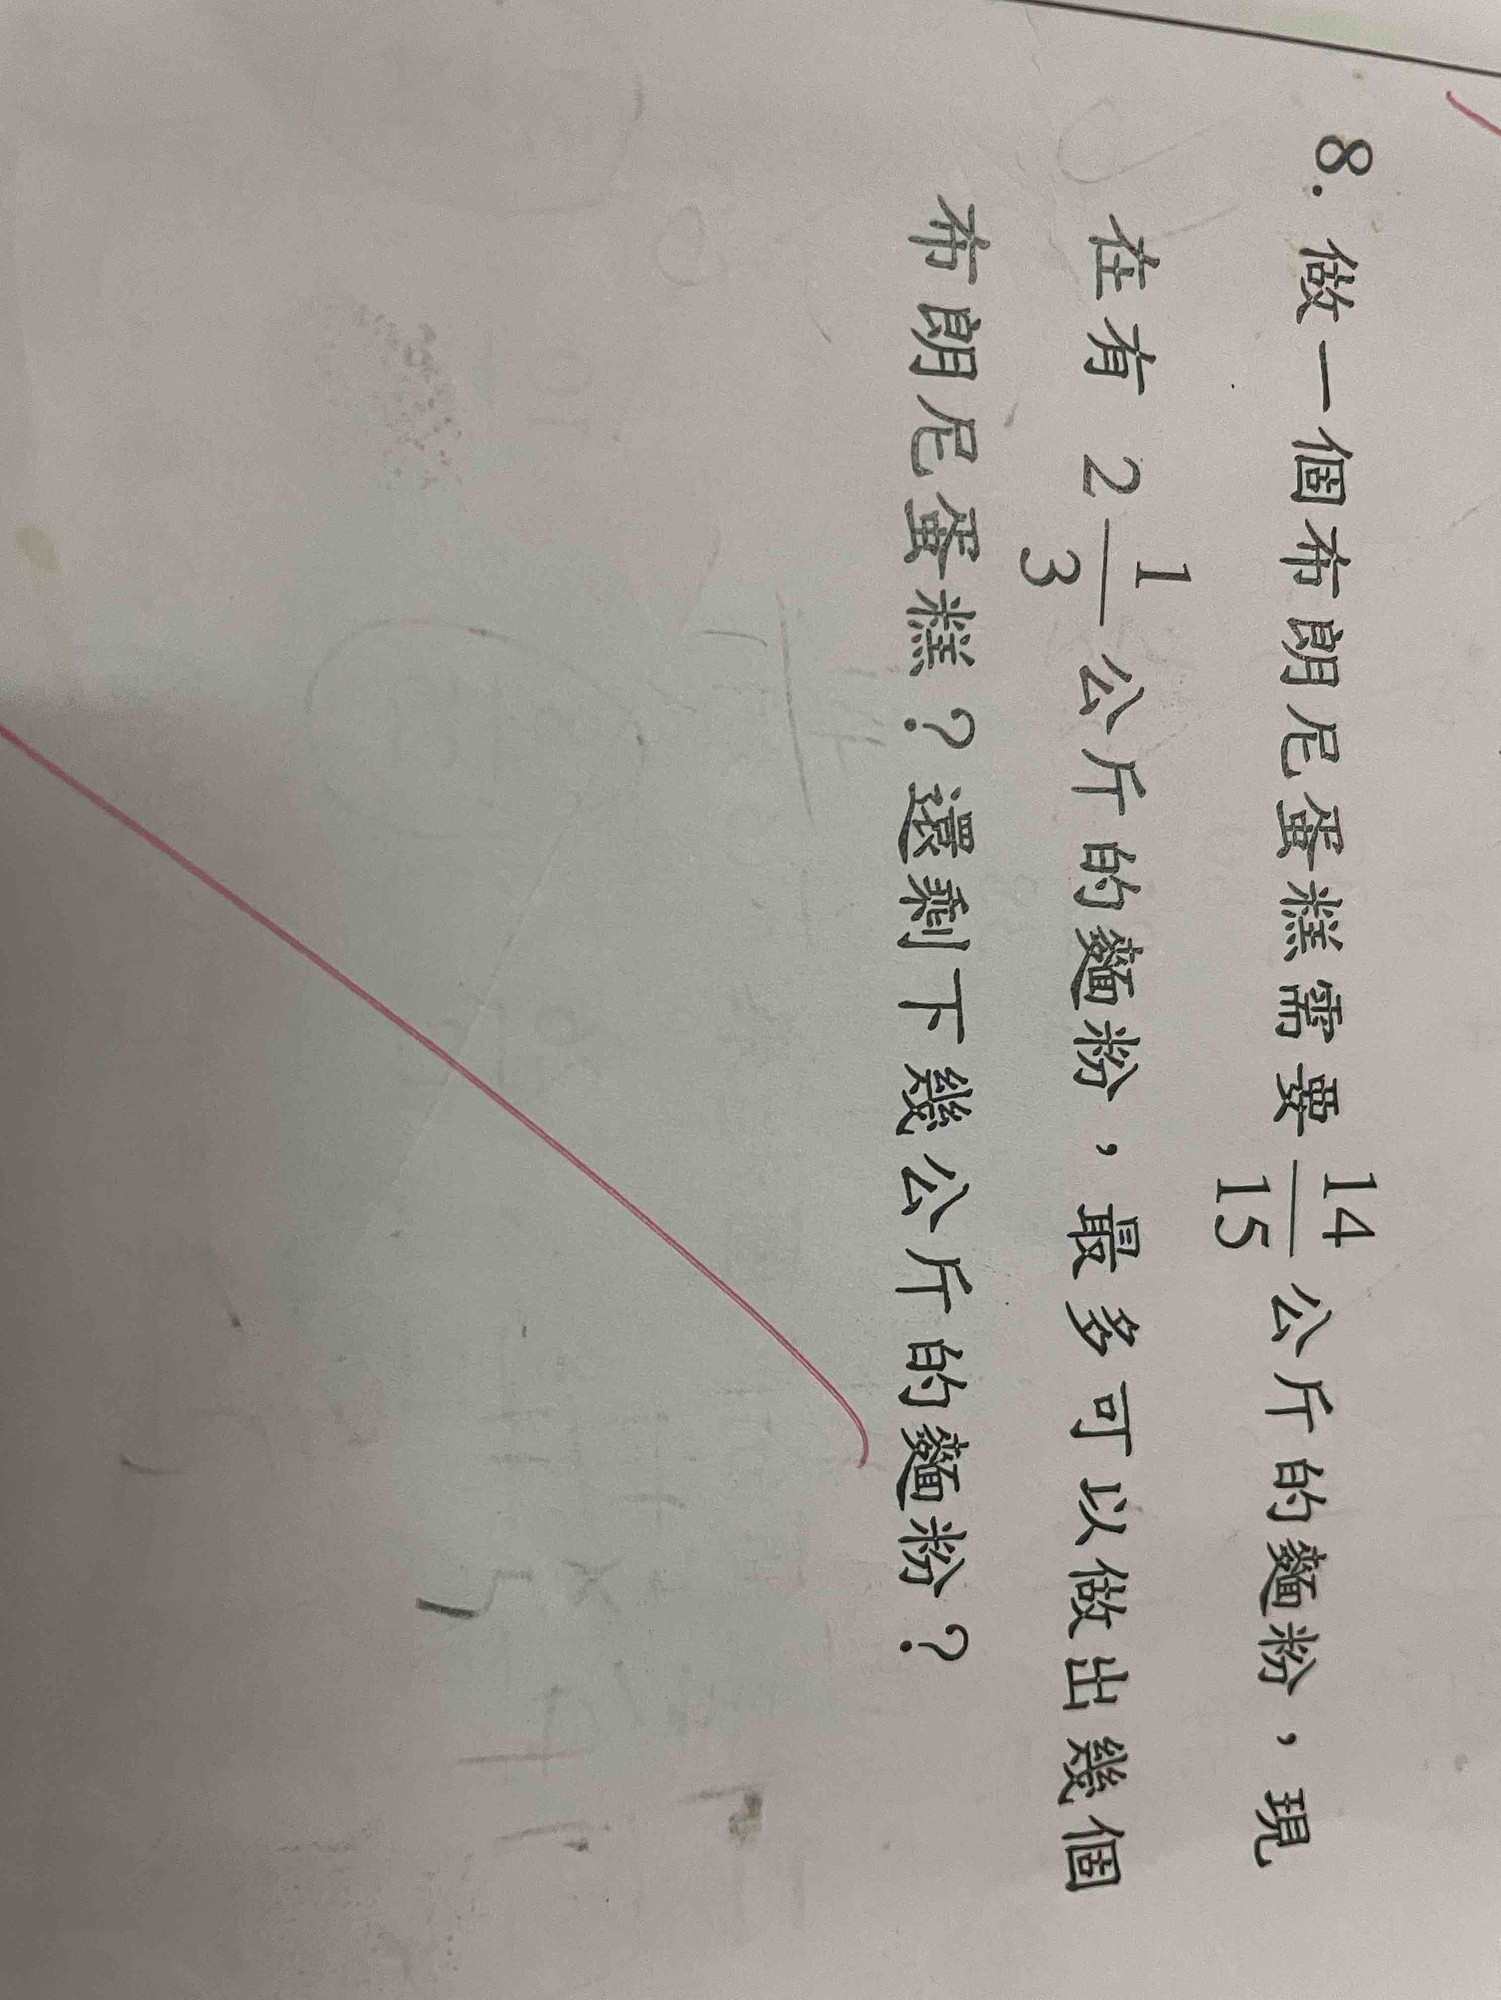 8. 做一個布朗尼蛋糕需要 14/15 公斤的麵粉，現
在有 2 1/3 公斤的麵粉，最多可以做出幾個
布朗尼蛋糕？還剩下幾公斤的麵粉？